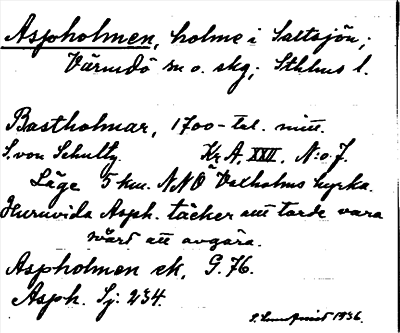 Aspholmen, holme i Saltsjön;
Värmdö sn o. skg; Sthlms l.
Bastholmar, 1700-tal. mitt.
S. von Schultz. Kr A. XXII. N:o 7.
Läge 5 km. NNO Vaxholms kyrka.
Huruvida Asph. täcker att torde vara
svårt att avgöra.
Aspholmen ek, G. 76.
Asph. Sj. 234.
1936.